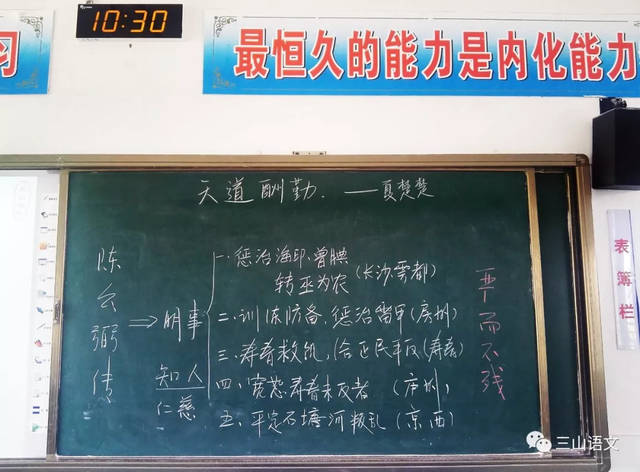 10:30
习
最恒久的能力是内化能力
天道酬勤. ——夏楚楚
陈公弼传
⇒ 明事
知人
仁慈
一、惩治海印、曾腆
转巫为农(长沙雩都)
二、训练防备、惩治雷甲(房州)
三、寿春救饥,民平反(寿春)
四、宽恕寿春未反者 (庐州)
五、平定石塘河叛乱(京西)
严而不残
表簿栏
三山语文